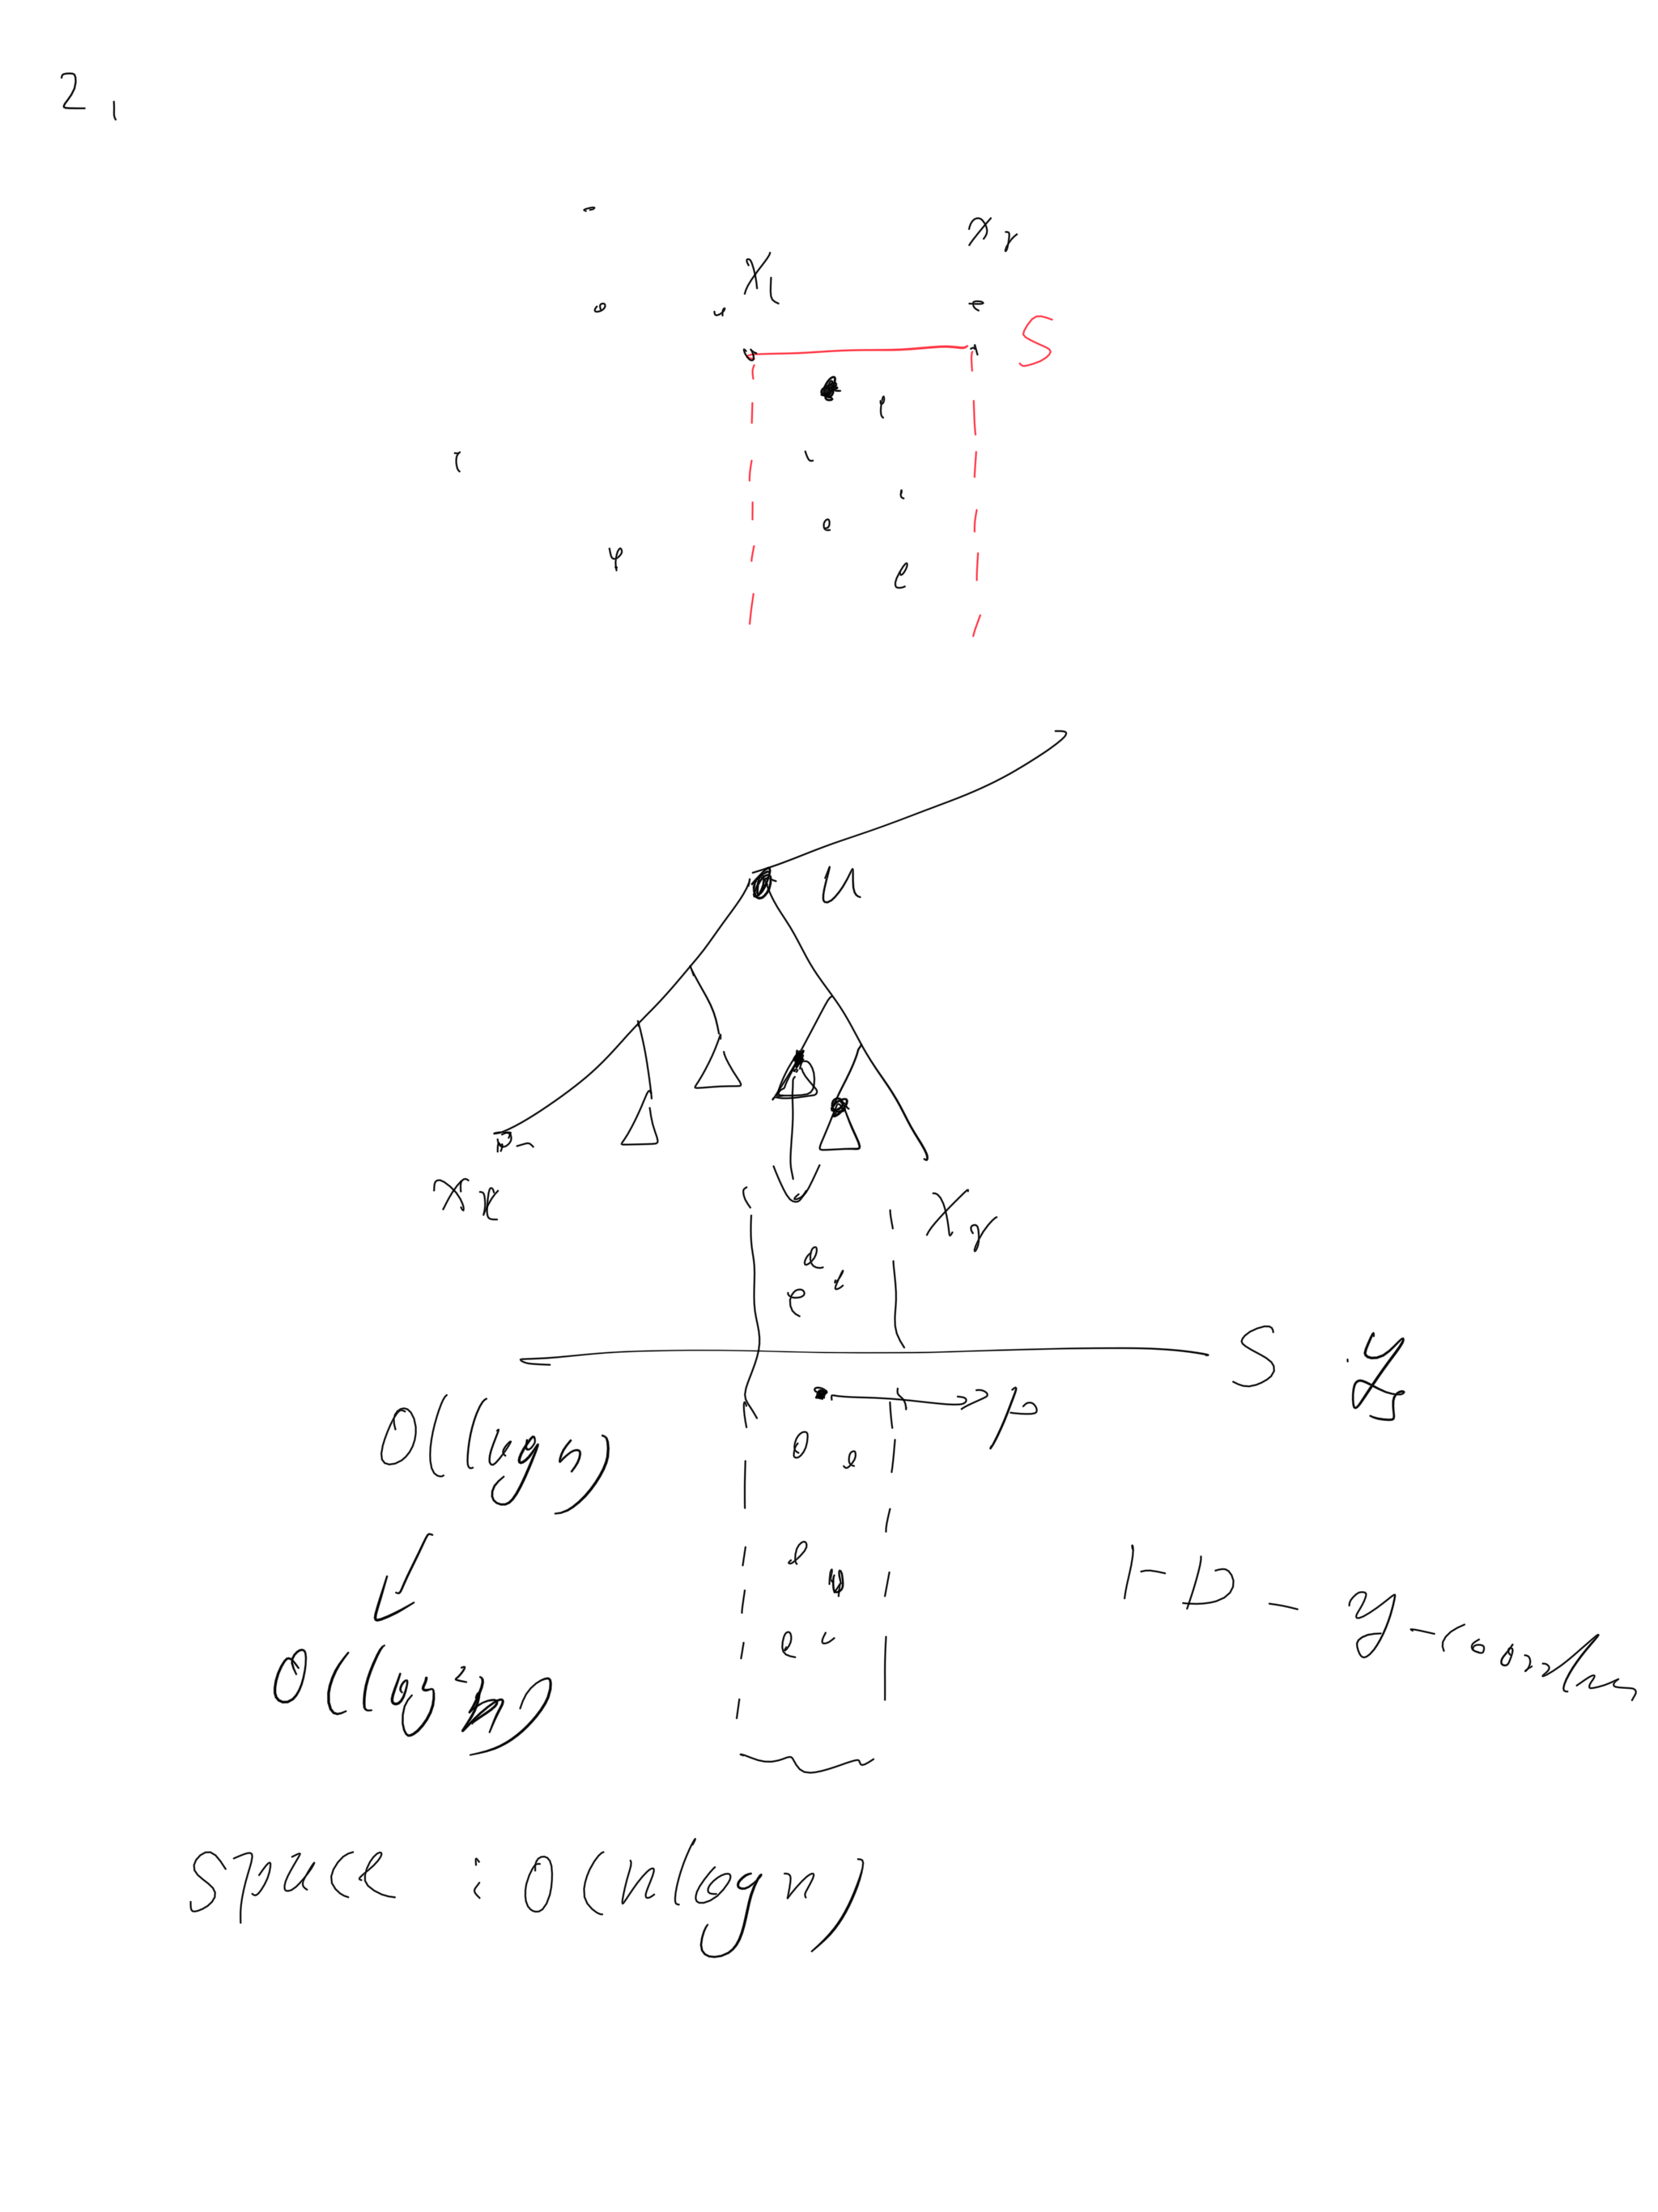 2,
x_r
x_l
S
u
x_l
x_r
S y_s
p
O(log n)
O(log² n)
1-D - y-coordin
space : O(n log n)